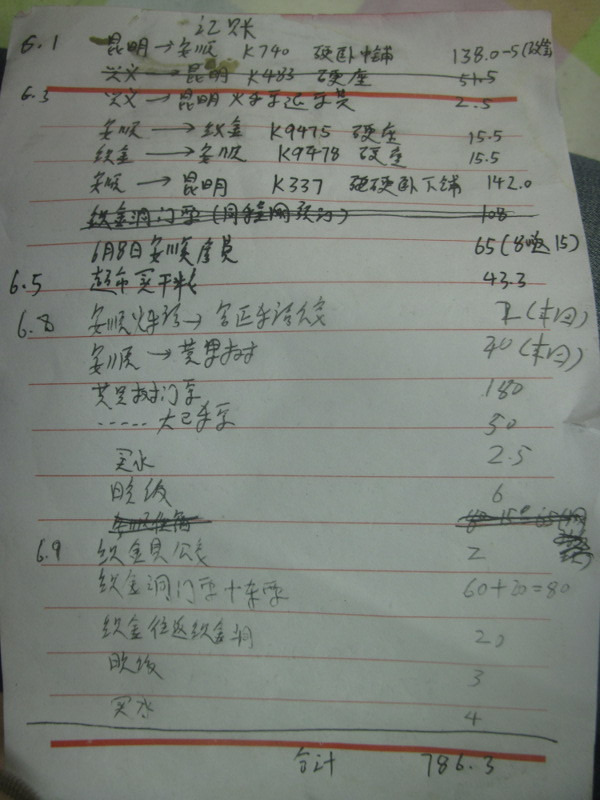 记账
6.1 昆明→安顺 K740 硬卧中铺 138.0-5
兴义→昆明 K483 硬座 51.5
6.3 兴义→昆明火车票退票费 2.5
安顺→织金 K9475 硬座 15.5
织金→安顺 K9478 硬座 15.5
安顺→昆明 K337 硬卧下铺 142.0
织金洞门票(同程网预订) 108
6月8日安顺 65(8 15)
6.5 超市买干粮 43.3
6.8 安顺火车站→客运车站 1
安顺→黄果树 20
黄果树门票 180
......大巴车票 50
买水 2.5
晚饭 6
6.9 织金县公交 2
织金洞门票+车票 60+20=80
织金往返织金洞 20
晚饭 3
买水 4
合计 786.3